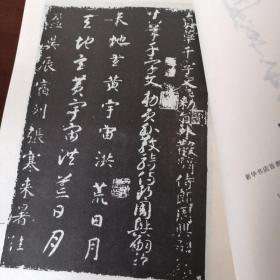 草千字文勅員外散騎侍郎周興嗣
草千字文勅員外散騎侍郎周興嗣次
天地玄黃宇宙洪荒日月
天地玄黃宇宙洪荒日月
盈昃辰宿列張寒來暑往
新华书店首都